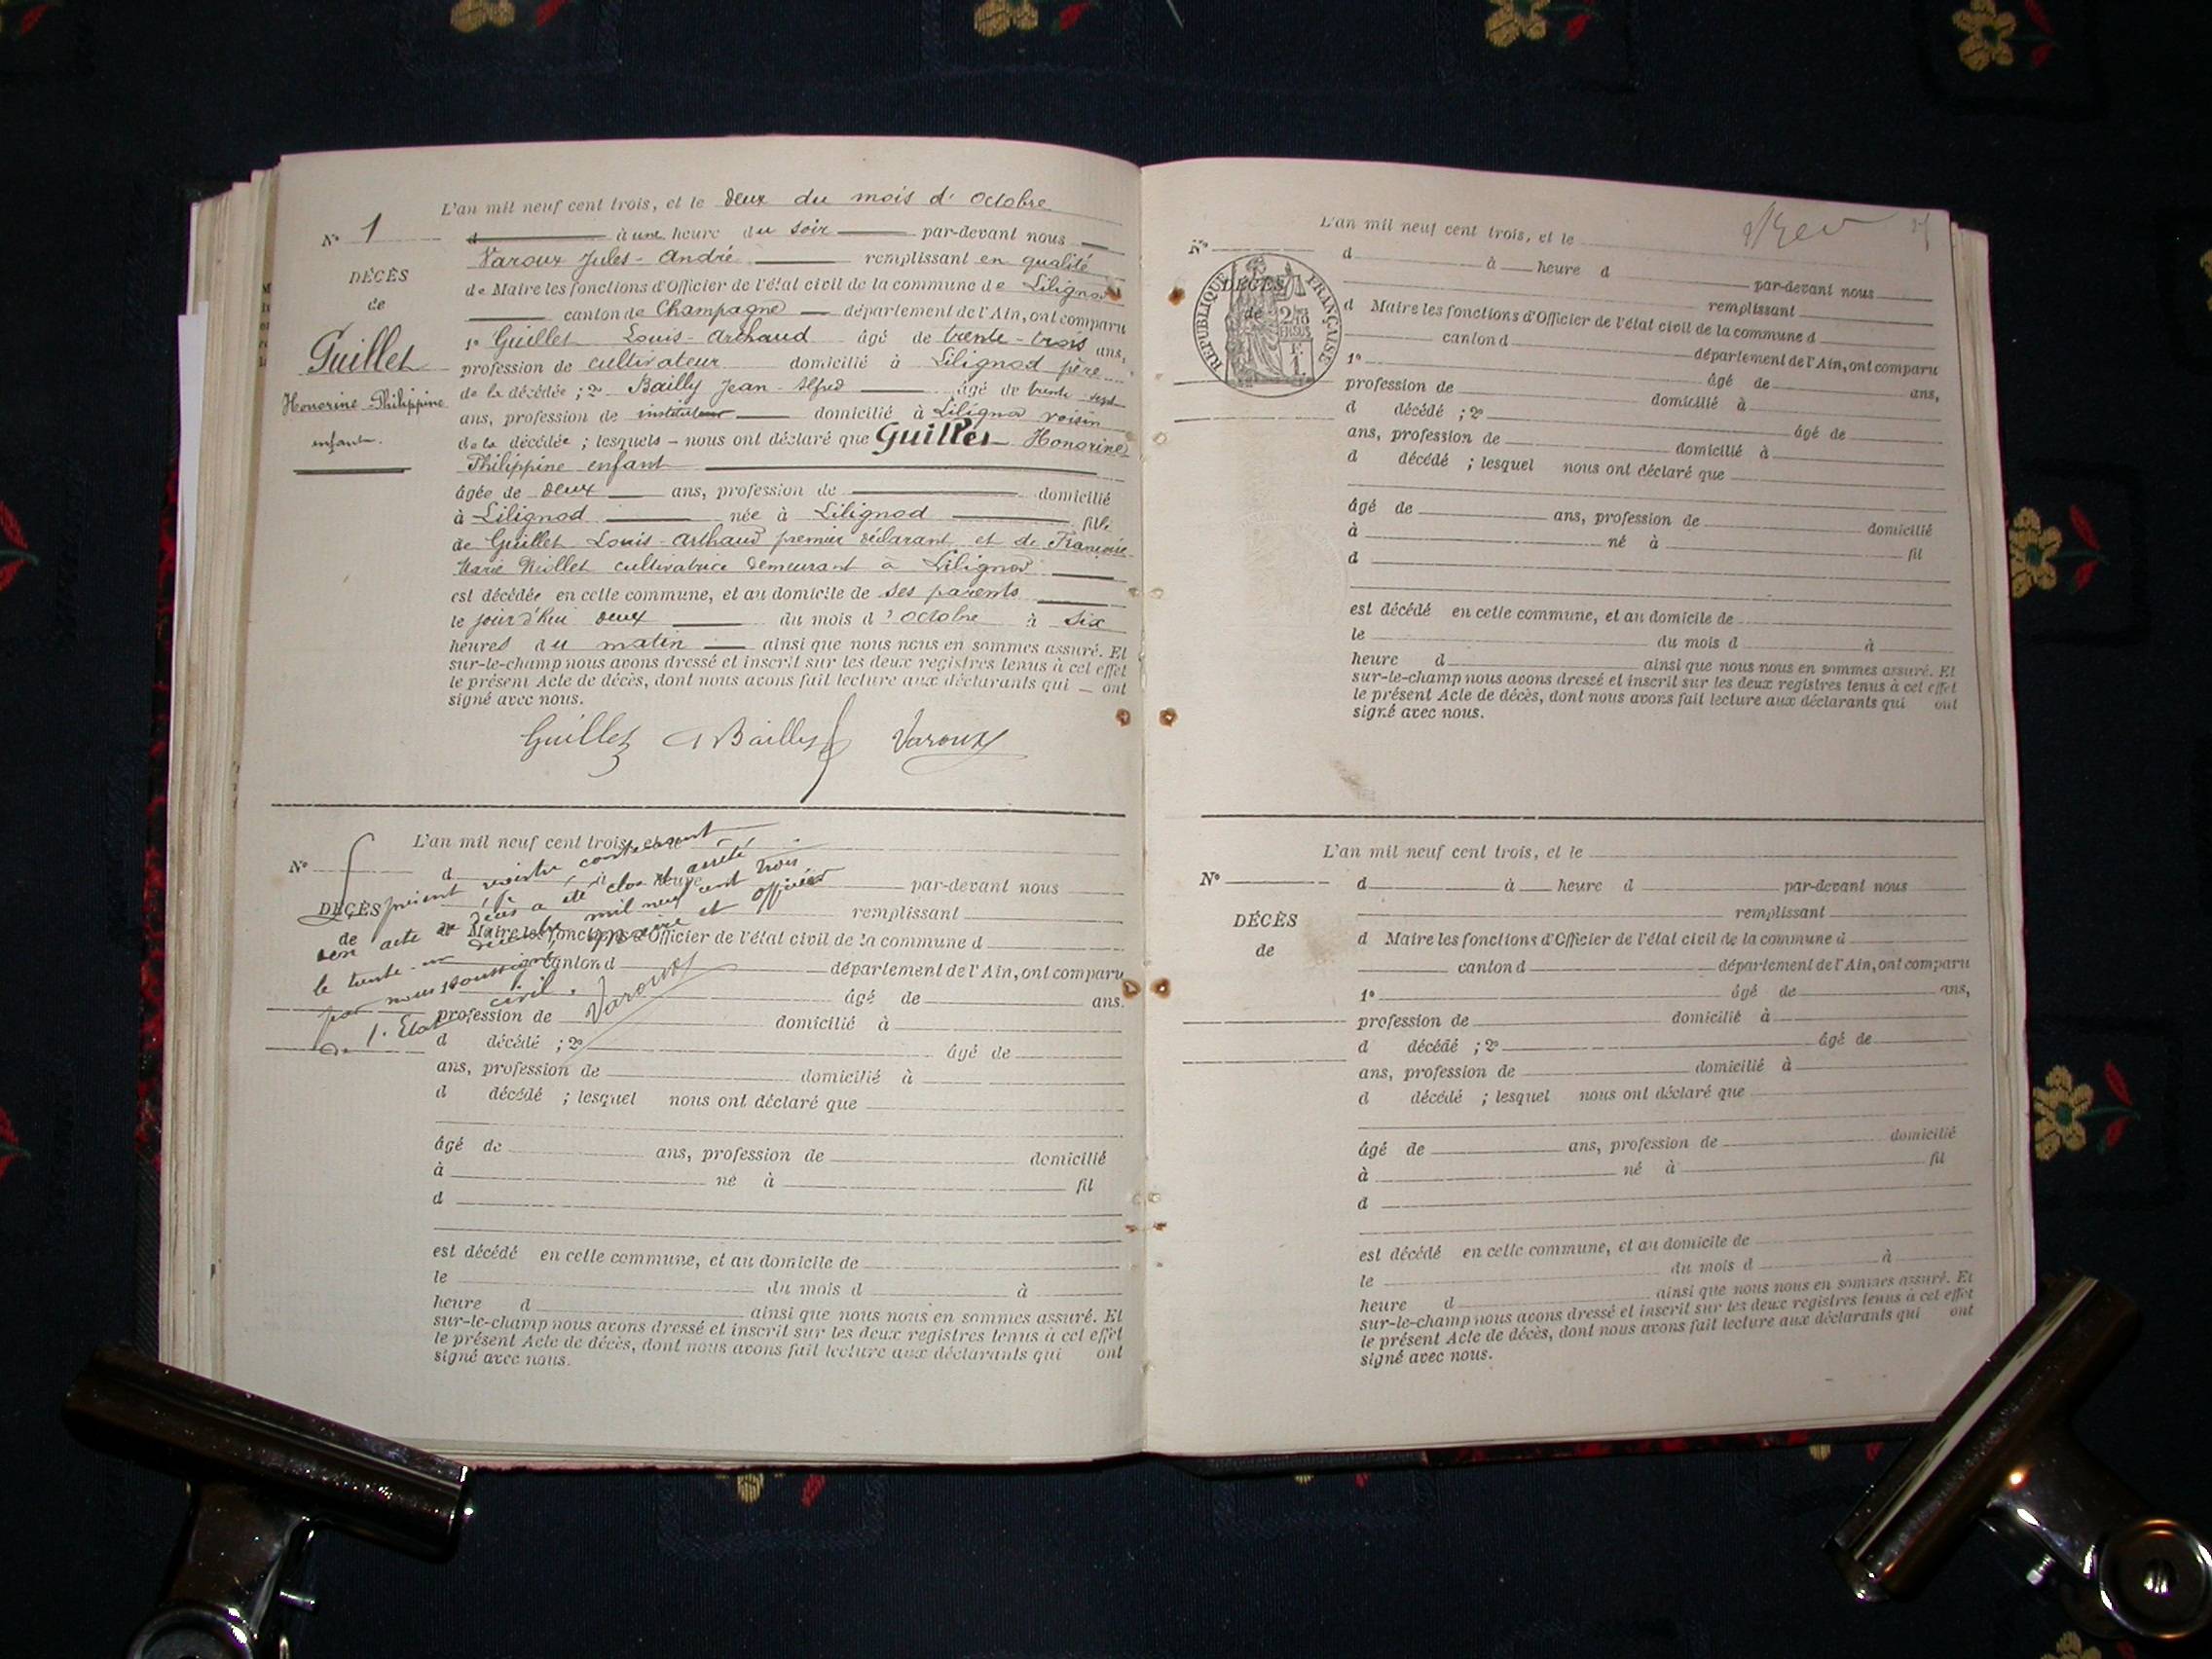 L'an mil neuf cent trois, et le deux du mois d'Octobre
N° 1
d à une heure du soir par-devant nous
Varoux Jules-André remplissant en qualité
DÉCÈS
de Maire les fonctions d'Officier de l'état civil de la commune de Lilignod
de
canton de Champagne département de l'Ain, ont comparu
Guillet
1° Guillet Louis-Arthaud âgé de trente-trois ans,
profession de cultivateur domicilié à Lilignod père
Honorine Philippine
de la décédée ; 2° Bailly Jean-Alfred âgé de trente sept
ans, profession de instituteur domicilié à Lilignod voisin
enfant.
de la décédée ; lesquels nous ont déclaré que Guillet Honorine
Philippine enfant
âgée de deux ans, profession de domicilié
à Lilignod née à Lilignod fille
de Guillet Louis-Arthaud premier déclarant et de Françoise
Marie Miollet cultivatrice demeurant à Lilignod
est décédée en cette commune, et au domicile de ses parents
le jourd'hui deux du mois d'Octobre à six
heures du matin ainsi que nous nous en sommes assuré. Et
sur-le-champ nous avons dressé et inscrit sur les deux registres tenus à cet effet
le présent Acte de décès, dont nous avons fait lecture aux déclarants qui ont
signé avec nous.
Guillet A Bailly Varoux
L'an mil neuf cent trois, et le
N°
d à heure par-devant nous
DÉCÈS
remplissant
de
d Maire les fonctions d'Officier de l'état civil de la commune d
canton d département de l'Ain, ont comparu
âgé de ans.
profession de domicilié à
d décédé ; 2° âgé de
ans, profession de domicilié à
d décédé ; lesquel nous ont déclaré que
âgé de ans, profession de domicilié
à né à fil
d
est décédé en cette commune, et au domicile de
le du mois d à
heure d ainsi que nous nous en sommes assuré. Et
sur-le-champ nous avons dressé et inscrit sur les deux registres tenus à cet effet
le présent Acte de décès, dont nous avons fait lecture aux déclarants qui ont
signé avec nous.
présent registre contenant
acte de décès a été clos et arrêté
le trente-un décembre mil neuf cent trois
par nous soussigné, maire et officier
de l'État civil.
Varoux
L'an mil neuf cent trois, et le
N°
d à heure d par-devant nous
DÉCÈS
de
RÉPUBLIQUE FRANÇAISE
remplissant
d Maire les fonctions d'Officier de l'état civil de la commune d
canton d département de l'Ain, ont comparu
1° âgé de ans,
profession de domicilié à
d décédé ; 2° âgé de
ans, profession de domicilié à
d décédé ; lesquel nous ont déclaré que
âgé de ans, profession de domicilié
à né à fil
d
est décédé en cette commune, et au domicile de
le du mois d à
heure d ainsi que nous nous en sommes assuré. Et
sur-le-champ nous avons dressé et inscrit sur les deux registres tenus à cet effet
le présent Acte de décès, dont nous avons fait lecture aux déclarants qui ont
signé avec nous.
L'an mil neuf cent trois, et le
N°
d à heure d par-devant nous
DÉCÈS
remplissant
de
d Maire les fonctions d'Officier de l'état civil de la commune d
canton d département de l'Ain, ont comparu
1° âgé de ans,
profession de domicilié à
d décédé ; 2° âgé de
ans, profession de domicilié à
d décédé ; lesquel nous ont déclaré que
âgé de ans, profession de domicilié
à né à fil
d
est décédé en cette commune, et au domicile de
le du mois d à
heure d ainsi que nous nous en sommes assuré. Et
sur-le-champ nous avons dressé et inscrit sur les deux registres tenus à cet effet
le présent Acte de décès, dont nous avons fait lecture aux déclarants qui ont
signé avec nous.